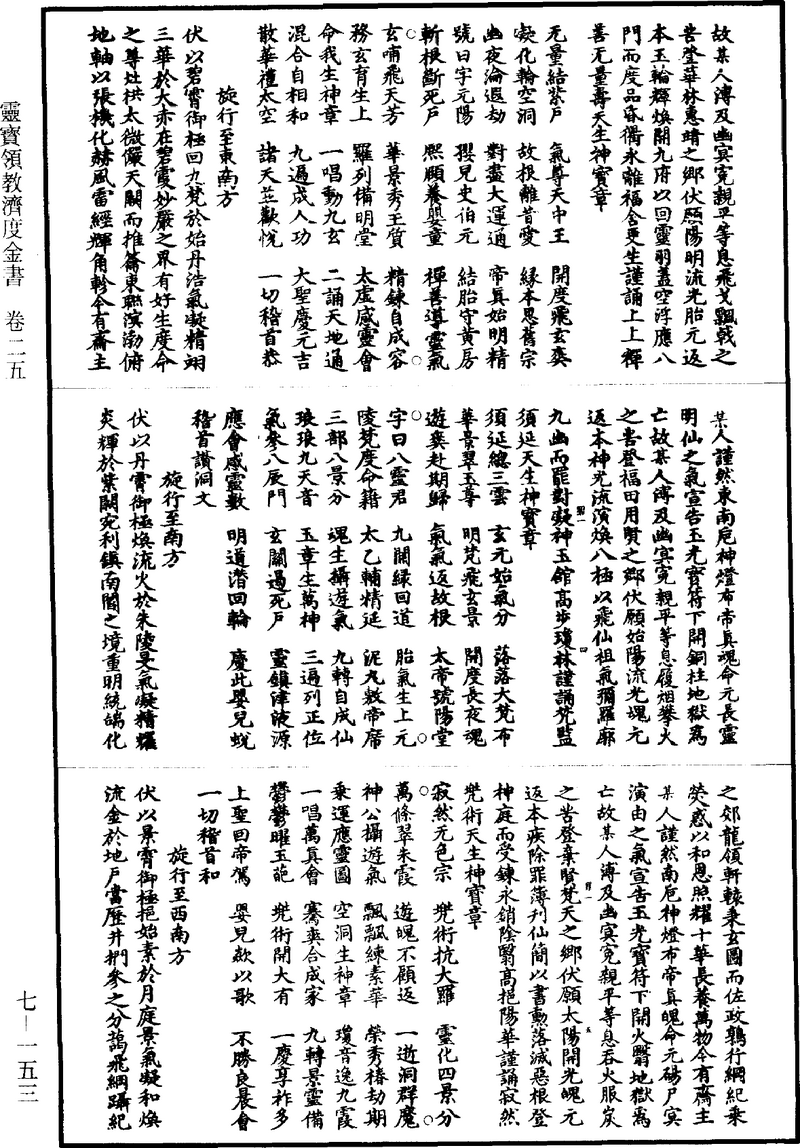 故某人溥及幽冥寃親平等息飛戈飄戟之
苦登華林惠靖之鄉伏願陽明流光胎元返
本玉輪輝煥開九府以回靈羽蓋空浮應八
門而度品昏衢永離福舍更生謹誦上上禪
善无量壽天生神寶章
无量結紫戶　氣尊天中王　開度飛玄爽
凝化輪空洞　故根離昔愛　緣本思舊宗
幽夜淪退劫　對盡大運通　帝眞始明精
號曰字元陽　嬰兒史伯元　結胎守黄房
斬根斷死戶　熙願養㷀童　禪善導靈氣
玄哺飛天芳　華景秀玉質　精鍊自成容
務玄育生上　羅列備明堂　太虚感靈會
命我生神章　一唱動九玄　二誦天地通
混合自相和　九遍成人功　大聖慶元吉
散華禮太空　諸天並歡悅　一切稽首恭
旋行至東南方
伏以碧霄御極回九梵於始丹浩氣凝精翊
三華於大赤在碧霞妙嚴之界有好生度命
之尊灶拱太微儼天關而推籥東聯溟渤俯
地軸以張機化赫風雷經輝角軫今有齋主
某人謹然東南厄神燈布帝眞魂命元長靈
明仙之氣宣告玉光寳符下開銅柱地獄爲
亡故某人溥及幽冥寃親平等息履烟攀火
之苦登福田用賢之鄉伏願始陽流光塊元
返本神光流濱煥八極以飛仙祖氣彌羅齋
九幽而罷對凝神玉館高步瓊林謹誦梵監
須延天生神寳章
須延總三雲　玄元始氣分　落落大梵布
華景翠玉尊　明梵飛玄景　開度長夜魂
遊爽赴期歸　氣氣返故根　太帝號陽堂
字曰八靈君　九關緑回道　胎氣生上元
陵梵度命籍　太乙輔精延　泥丸敷帝席
三部八景分　魂生攝遊氣　九轉自成仙
琅琅九天音　玉章生萬神　三遍列正位
氣參八辰門　玄關遏死戶　靈鎮津液源
應會感靈數　明道潛回輪　慶此嬰兒蛻
稽首讚洞文
旋行至南方
伏以丹霄御極煥流火於朱陵炅氣凝精耀
炎輝於紫闕宛利鎮南閣之境重明統端化
之郊龍領軒轅秉玄圖而佐政鶉行綱紀乗
熒惑以和恩照耀十華長養萬物今有齋主
某人謹然南厄神燈布帝眞魄命元碭尸冥
演由之氣宣告玉光寶符下開火翳地獄爲
亡故某人溥及幽冥寃親平等息吞火服炭
之苦登棄賢梵天之鄉伏願太陽開光魄元
返本疾除罪薄刋仙簡以書勳落滅惡根登
神庭而受鍊永銷陰翳高挹陽華謹誦寂然
兠術天生神寶章
寂然无色宗　兠術抗大羅　靈化四景分
萬條翠朱霞　遊魄不顧返　一逝洞群魔
神公攝遊氣　飄飄練素華　榮秀椿劫期
乗運應靈圖　空洞生神章　瓊音逸九霞
一唱萬眞會　騫爽合成家　九轉景靈備
鬱鬱曜玉葩　兠術開大有　一慶享祚多
上聖回帝駕　嬰兒欻以歌　不勝良晨會
一切稽首和
旋行至西南方
伏以景霄御極挹始素於月庭景氣凝和煥
流金於地戶當歷井捫參之分藹飛綱躡紀
靈寶領教濟度金書　卷二五
七—一五三